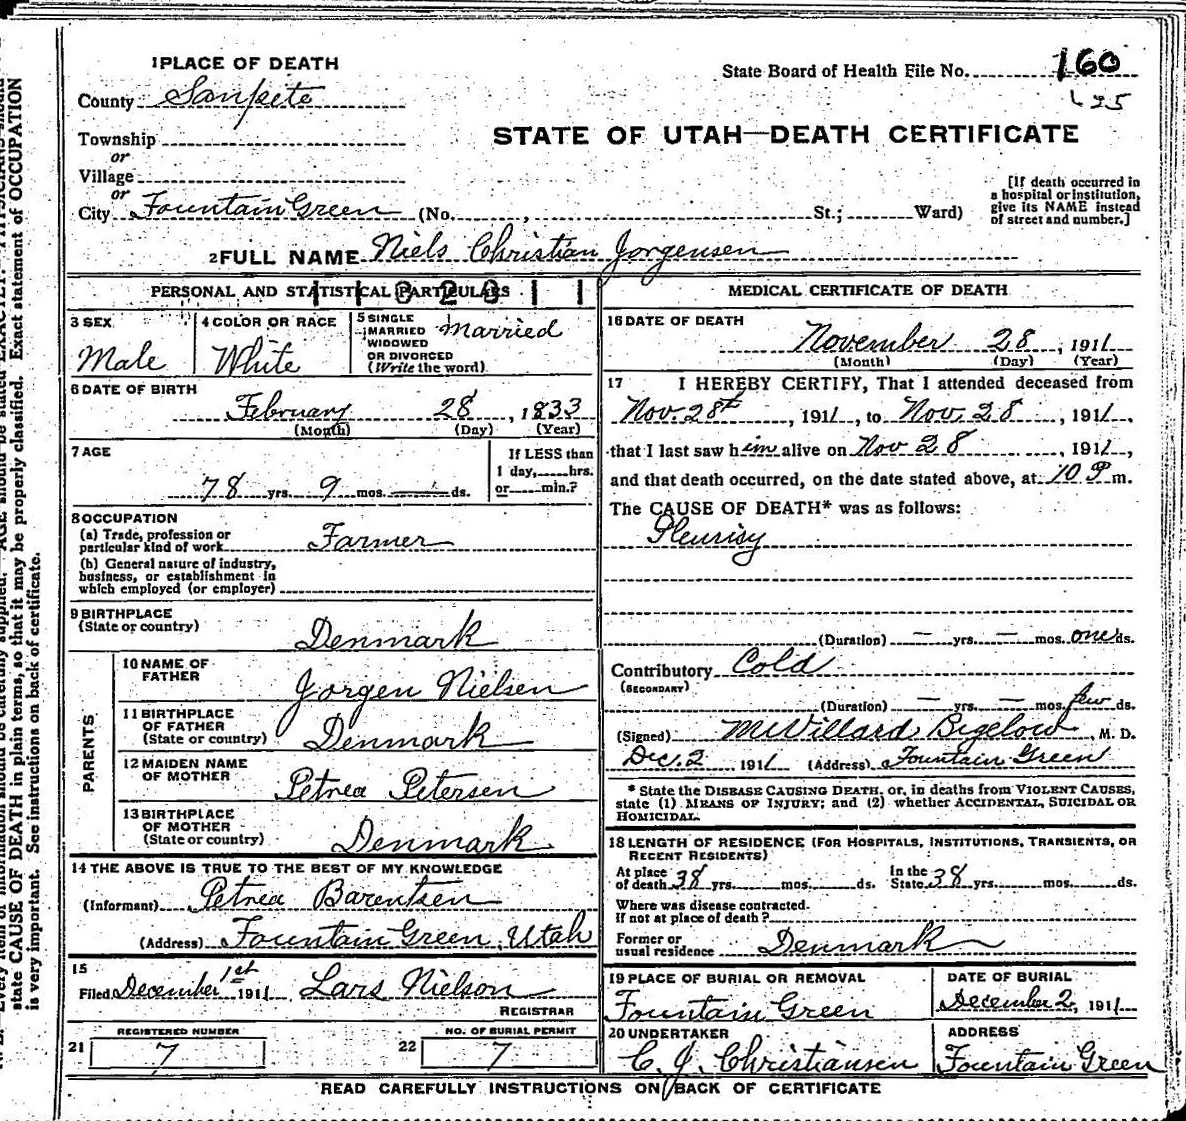 1 PLACE OF DEATH
State Board of Health File No. 160
County Sanpete
Township
or
Village
or
City Fountain Green (No. , St.; Ward)
STATE OF UTAH—DEATH CERTIFICATE
[If death occurred in
a hospital or institution,
give its NAME instead
of street and number.]
2 FULL NAME Niels Christian Jorgensen
PERSONAL AND STATISTICAL PARTICULARS
3 SEX
Male
4 COLOR OR RACE
White
5 SINGLE
MARRIED
WIDOWED
OR DIVORCED
(Write the word)
Married
6 DATE OF BIRTH
February 28, 1833
(Month) (Day) (Year)
7 AGE
78 yrs. 9 mos. — ds.
If LESS than
1 day, hrs.
or min.?
8 OCCUPATION
(a) Trade, profession or
particular kind of work Farmer
(b) General nature of industry,
business, or establishment in
which employed (or employer)
9 BIRTHPLACE
(State or country)
Denmark
PARENTS
10 NAME OF
FATHER
Jorgen Nielsen
11 BIRTHPLACE
OF FATHER
(State or country)
Denmark
12 MAIDEN NAME
OF MOTHER
Petrea Petersen
13 BIRTHPLACE
OF MOTHER
(State or country)
Denmark
14 THE ABOVE IS TRUE TO THE BEST OF MY KNOWLEDGE
(Informant) Petrea Barentsen
(Address) Fountain Green, Utah
15
Filed December 1st 1911 Lars Nielson
REGISTRAR
REGISTERED NUMBER
21 7
NO. OF BURIAL PERMIT
22 7
MEDICAL CERTIFICATE OF DEATH
16 DATE OF DEATH
November 28, 1911
(Month) (Day) (Year)
17 I HEREBY CERTIFY, That I attended deceased from
Nov. 28th, 1911, to Nov. 28, 1911,
that I last saw him alive on Nov 28, 1911,
and that death occurred, on the date stated above, at 10 P m.
The CAUSE OF DEATH* was as follows:
Pleurisy
(Duration) — yrs. — mos. one ds.
Contributory Cold
(SECONDARY)
(Duration) — yrs. — mos. few ds.
(Signed) M Willard Bigelow, M. D.
Dec. 2 1911 (Address) Fountain Green
* State the DISEASE CAUSING DEATH, or, in deaths from VIOLENT CAUSES,
state (1) MEANS OF INJURY; and (2) whether ACCIDENTAL, SUICIDAL OR
HOMICIDAL.
18 LENGTH OF RESIDENCE (FOR HOSPITALS, INSTITUTIONS, TRANSIENTS, OR
RECENT RESIDENTS)
At place
of death 38 yrs. mos. ds.
In the
State 38 yrs. mos. ds.
Where was disease contracted.
If not at place of death?
Former or
usual residence Denmark
19 PLACE OF BURIAL OR REMOVAL
Fountain Green
DATE OF BURIAL
December 2, 1911
20 UNDERTAKER
C. J. Christiansen
ADDRESS
Fountain Green
READ CAREFULLY INSTRUCTIONS ON BACK OF CERTIFICATE
state CAUSE OF DEATH in plain terms, so that it may be properly classified. Exact statement of OCCUPATION
is very important. See instructions on back of certificate.